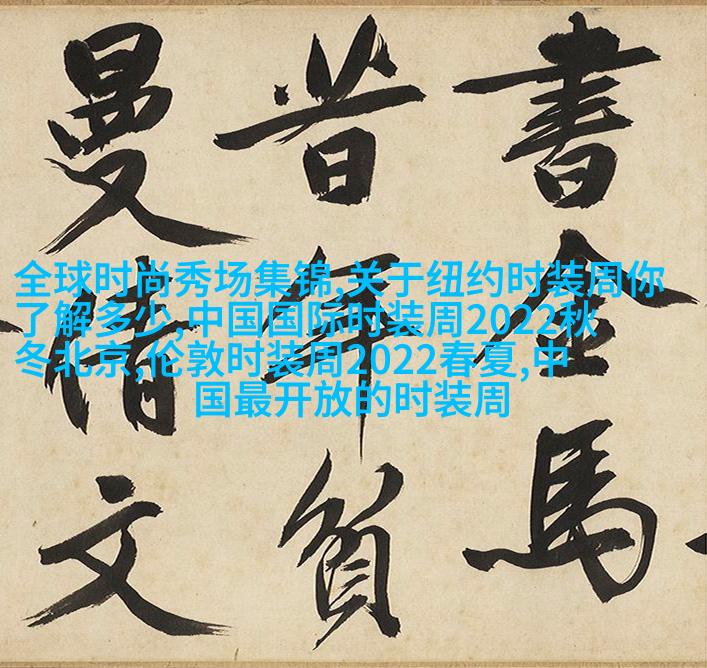 全球时尚秀场集锦,关于纽约时装周你
了解多少,中国国际时装周2022秋
冬北京,伦敦时装周2022春夏,中
国最开放的时装周
書金馬
昔年負
曼倩文